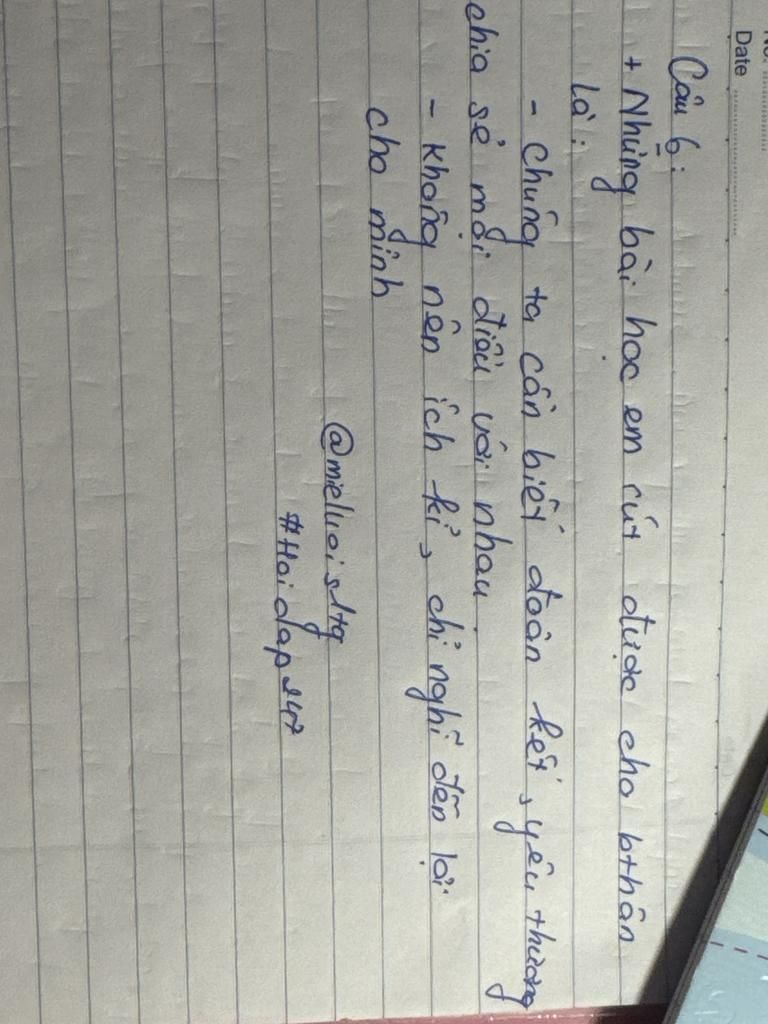 No.
Date
Câu 6:
+ Những bài học em rút được cho bthân
là:
- Chúng ta cần biết đoàn kết, yêu thương
chia sẻ mọi điều với nhau
- Không nên ích kỉ, chỉ nghĩ đến lợi
cho mình
#Hoidap247